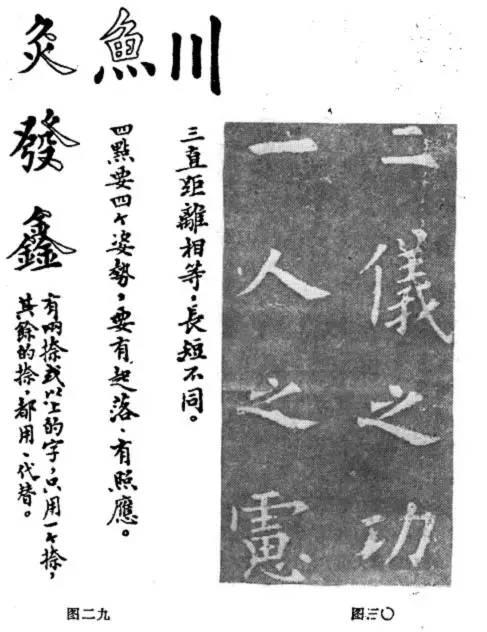 川
三直距離相等，長短不同。
魚
四點要四个姿勢，要有起落、有照應。
灸
發
鑫
有兩捺或以上的字，只用一个捺，
其餘的捺，都用丶代替。
图二九
二儀之功
一人之慮
图三〇